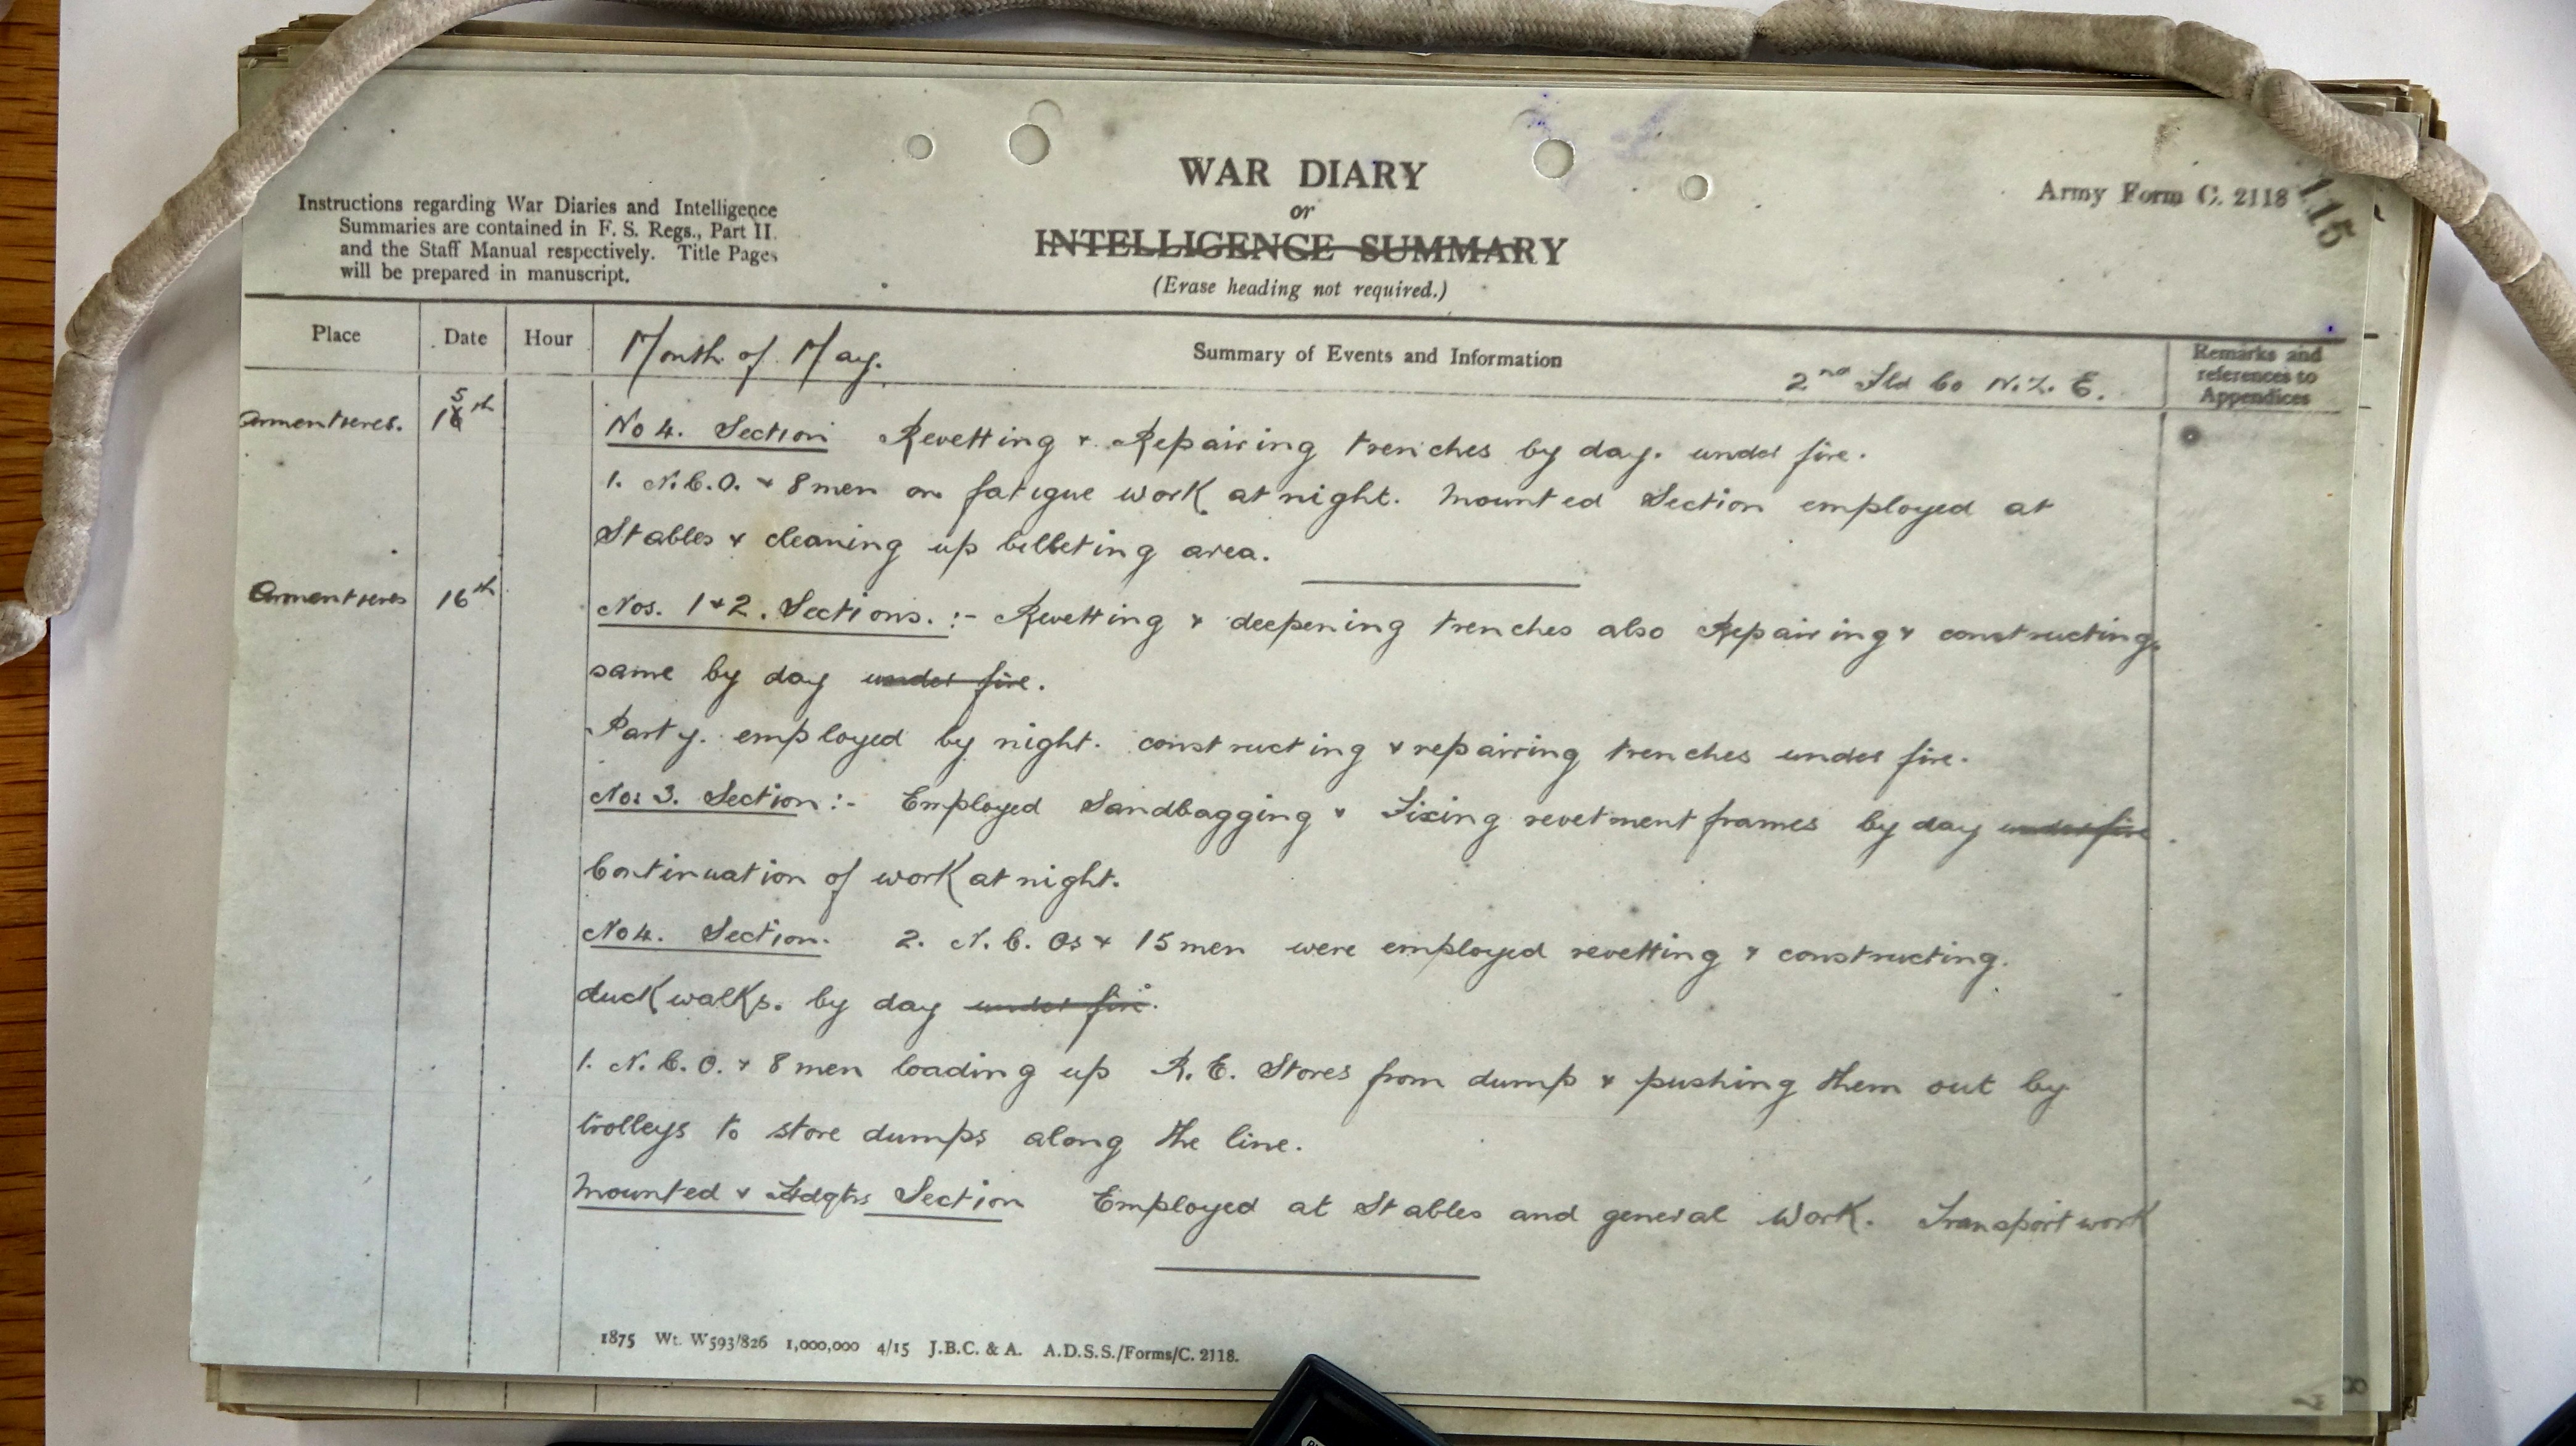 WAR DIARY
or
INTELLIGENCE SUMMARY
(Erase heading not required.)
Instructions regarding War Diaries and Intelligence
Summaries are contained in F. S. Regs., Part II.
and the Staff Manual respectively. Title Pages
will be prepared in manuscript.
Army Form C. 2118
115
Place
Date
Hour
Month of May.
Summary of Events and Information
2nd Fld Co N.Z. E.
Remarks and
references to
Appendices
Armentieres. 15th
No 4. Section Revetting & Repairing trenches by day. under fire.
1. N.C.O. & 8 men on fatigue work at night. Mounted Section employed at
Stables & cleaning up billeting area.
Armentieres 16th
Nos. 1 & 2. Sections. :- Revetting & deepening trenches also Repairing & constructing
same by day under fire.
Party. employed by night. constructing & repairing trenches under fire.
No: 3. Section :- Employed Sandbagging & Fixing revetment frames by day under fire
Continuation of work at night.
No 4. Section. 2. N. C. Os & 15 men were employed revetting & constructing.
duckwalks. by day under fire.
1. N. C. O. & 8 men loading up R. E. Stores from dump & pushing them out by
trolleys to store dumps along the line.
Mounted & Hdqtrs Section Employed at Stables and general Work. Transport work
1875 Wt. W593/826 1,000,000 4/15 J.B.C. & A. A.D.S.S./Forms/C. 2118.